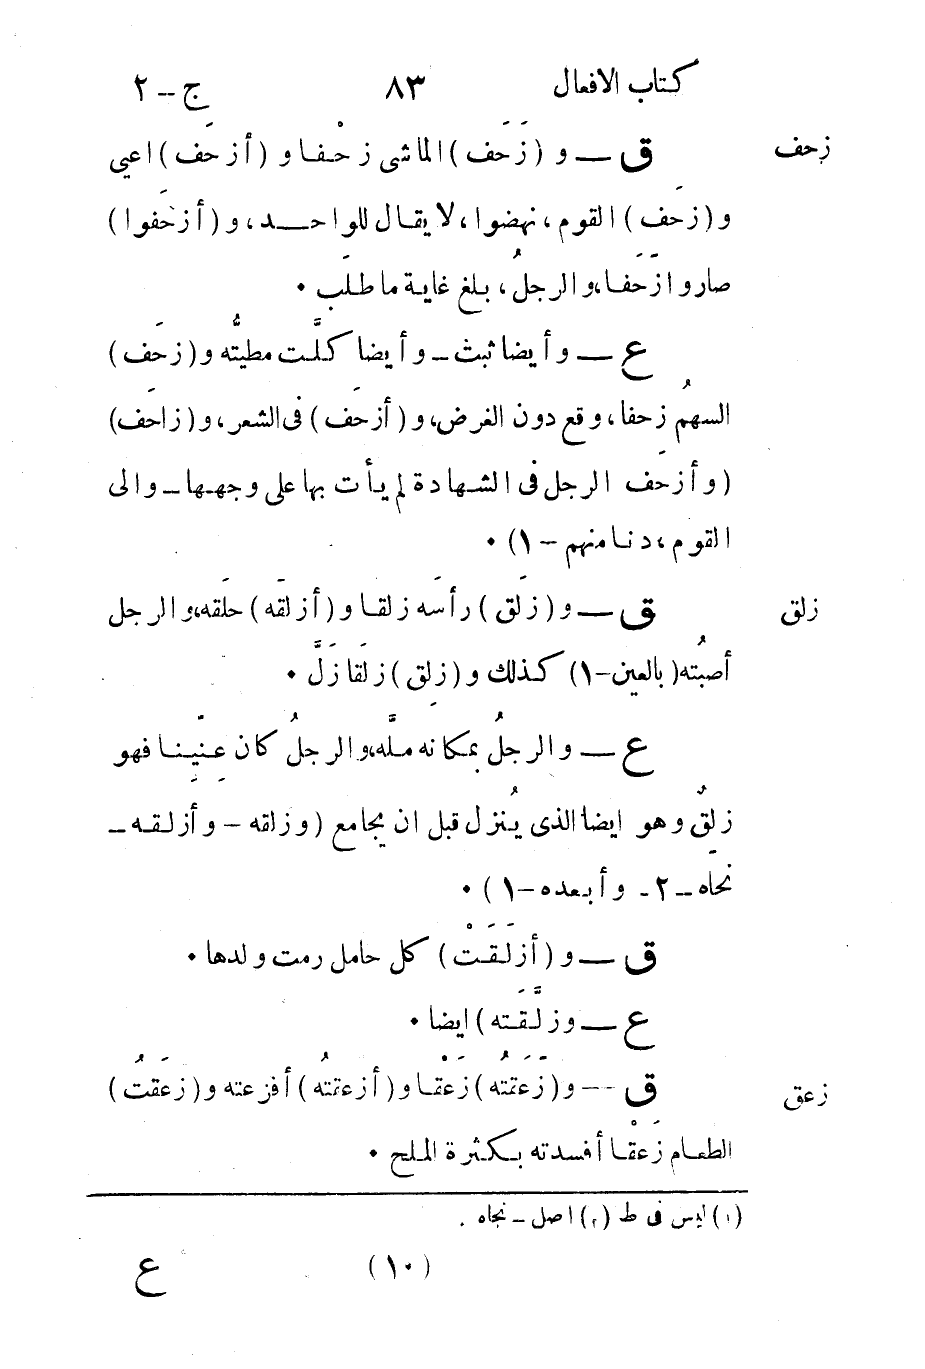 كتاب الافعال ٨٣ ج – ٢
زحف ق — و (زَحَف) الماشى زحْفا و (أزحَف) اعيى
و (زحَف) القوم، نهضوا، لا يقال للواحد، و (أزحَفوا)
صاروا زَحَفا، والرجلُ، بلغ غاية ما طلَب •
ع — وأيضا ثبث – وأيضا كلَّت مطيتُه و (زحَف)
السهمُ زحفا، وقع دون الغرض، و (أزحَف) فى الشعر، و (زاحَف)
(وأزحَف الرجل فى الشهادة لم يأت بها على وجهها – والى
القوم، دنا منهم – ١) •
زلق ق — و (زلَق) رأسَه زلقا و (أزلَقه) حلَقه، والرجل
أصبتُه (بالعين – ١) كذلك و (زلِق) زلَقا زَلَّ •
ع — والرجلُ بمكانه ملَّه، والرجلُ كان عِنِّينا فهو
زلِقٌ وهو ايضا الذى يُنزل قبل ان يجامع (وزلقه – وأزلقه –
نحّاه – ٢ – وأبعده – ١) •
ق — و (أزلَقَتْ) كل حامل رمت ولدها •
ع — وزلَّقَته) ايضا •
زعق ق — و (زَعَقتُه) زعْقا و (أزعقتُه) أفزعته و (زعَقتُ)
الطعامَ زعْقا أفسدته بكثرة الملح •
(١) ليس فى ط (٢) اصل – نجاه .
(١٠) ع